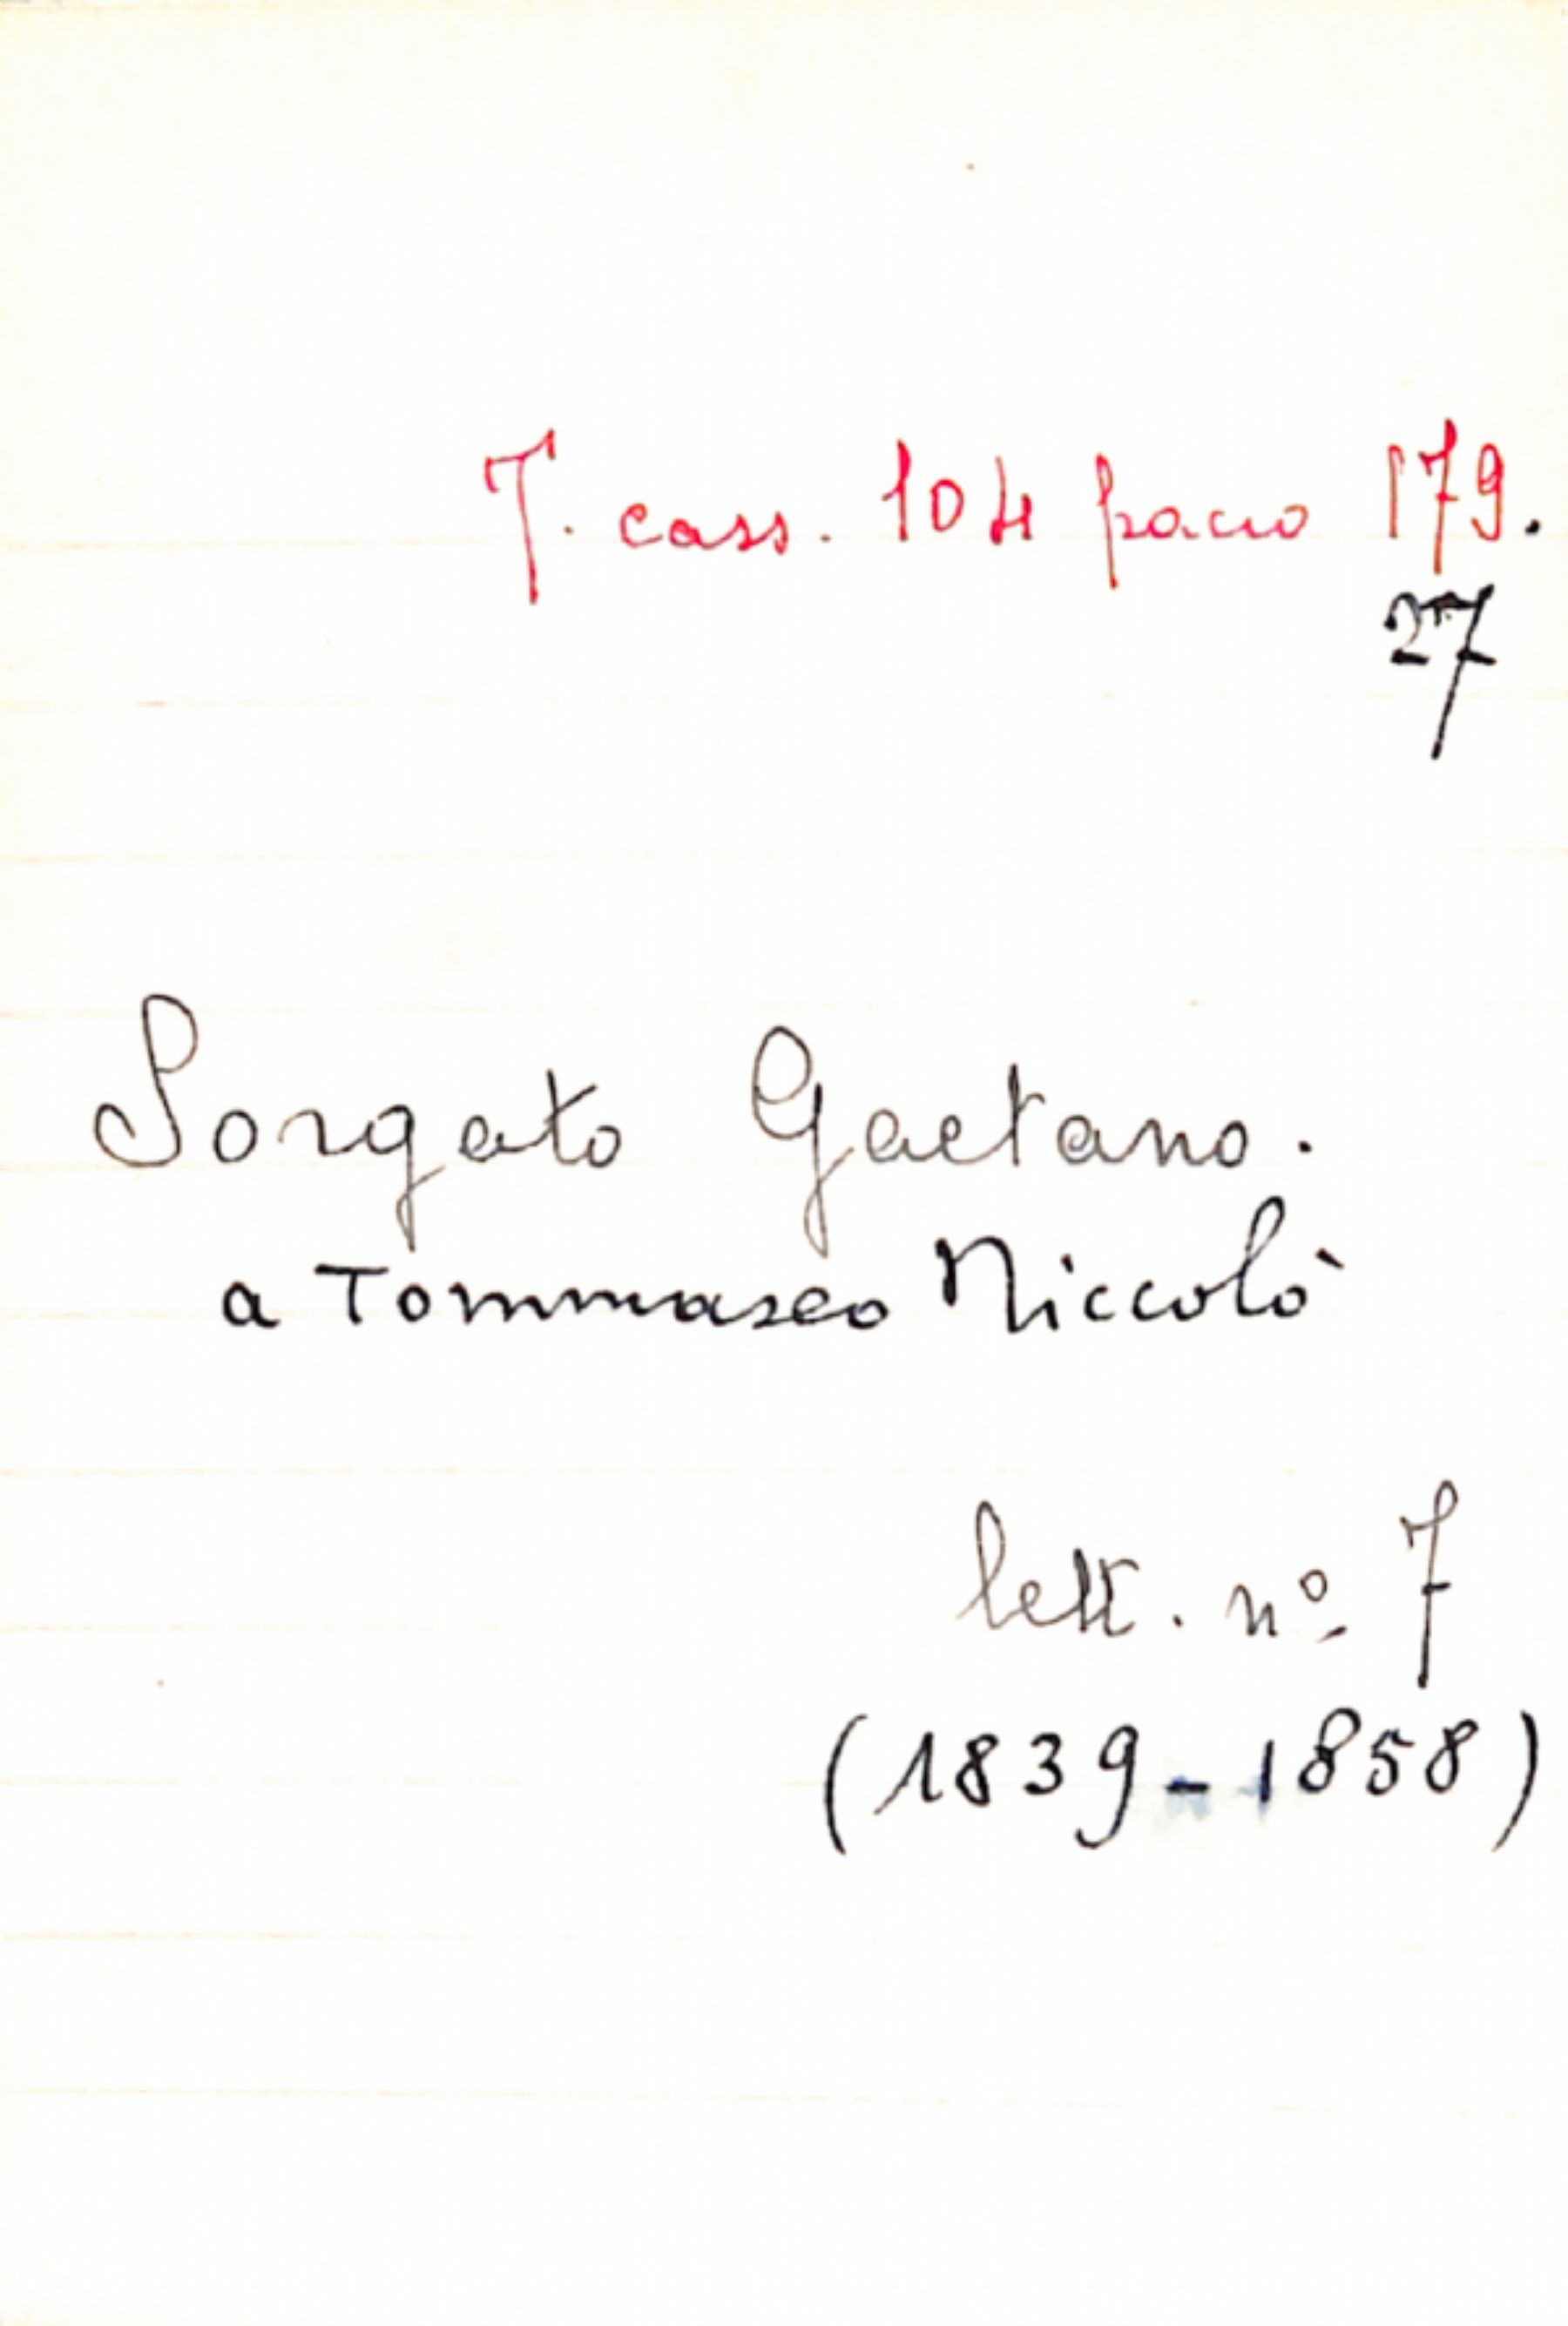 T. cass. 104 pacco 179.
27
Sorgato Gaetano.
a Tommaseo Niccolò
lett. nº 7
(1839-1858)